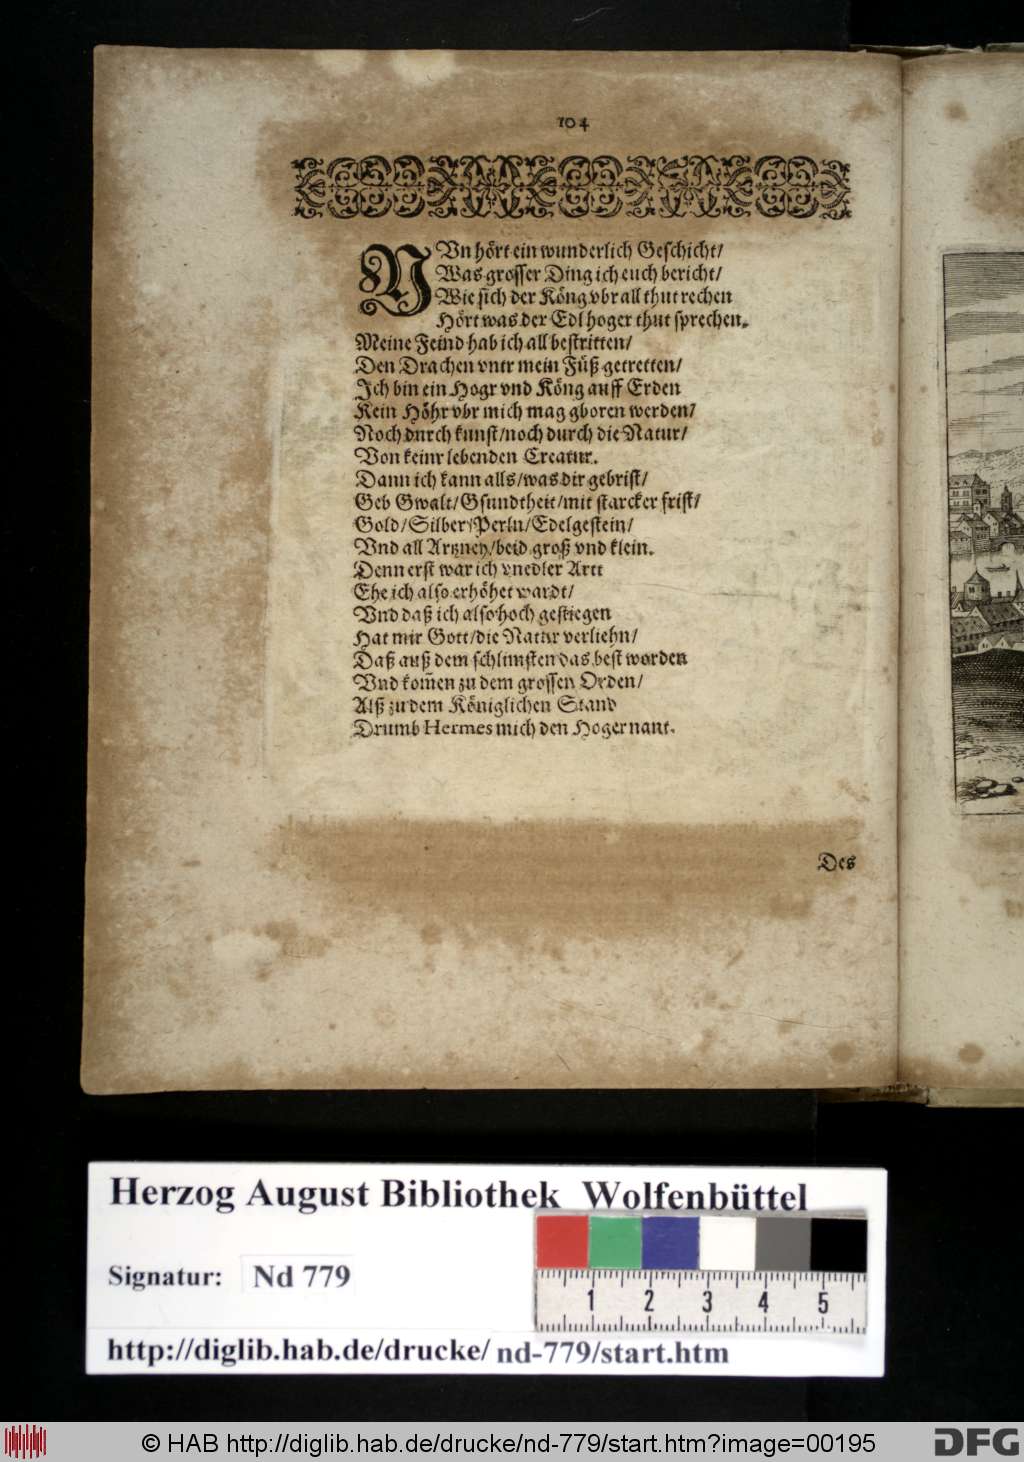 104
NVn hört ein wunderlich Geschicht/
Was grosser Ding ich euch bericht/
Wie sich der Köng vbr all thut rechen
Hört was der Edl hoger thut sprechen.
Meine Feind hab ich all bestritten/
Den Drachen vntr mein Füß getretten/
Ich bin ein Hogr vnd Köng auff Erden
Kein Höhr vbr mich mag gboren werden/
Noch durch kunst/noch durch die Natur/
Von keinr lebenden Creatur.
Dann ich kann alls/was dir gebrist/
Geb Gwalt/Gsundtheit/mit starcker frist/
Gold/Silber/Perln/Edelgestein/
Vnd all Artzney/beid groß vnd klein.
Denn erst war ich vnedler Artt
Ehe ich also erhöhet wardt/
Vnd daß ich also hoch gestiegen
Hat mir Gott/die Natur verliehn/
Daß auß dem schlimsten das best worden
Vnd kom̄en zu dem grossen Orden/
Alß zu dem Königlichen Stand
Drumb Hermes mich den Hoger nant.
Des
Herzog August Bibliothek Wolfenbüttel
Signatur: Nd 779
1 2 3 4 5
http://diglib.hab.de/drucke/ nd-779/start.htm
© HAB http://diglib.hab.de/drucke/nd-779/start.htm?image=00195
DFG